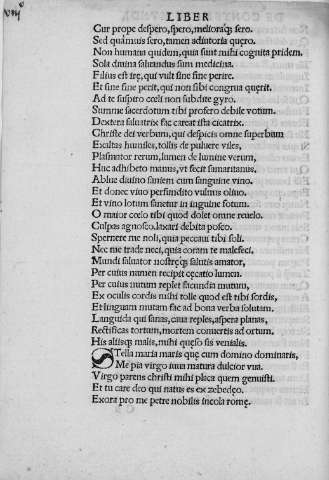 LIBER
Cur prope despero, spero, melioraq; sero.
Sed quāuis sero, tamen adiutoria quęro.
Non humana quidem, quia sunt mihi cognita pridem.
Sola diuina saluandus sum medicina.
Filius est irę, qui vult sine fine perire.
Et sine fine perit, qui non sibi congrua quęrit.
Ad te suspiro cœli non subdite gyro.
Summe sacerdotum tibi profero debile votum.
Dextera saluatrix fac careat ista cicatrix.
Christe dei verbum, qui despicis omne superbum
Exaltas humiles, tollis de puluere viles,
Plasmator rerum, lumen de lumine verum,
Huc adhibeto manus, vt fecit samaritanus.
Ablue diuino saniem cum sanguine vino.
Et donec viuo perfundito vulnus oliuo.
Et vino lotum sanetur in inguine totum.
O maior cœlo tibi quod dolet omne reuelo.
Culpas agnosco, laxari debita posco.
Spernere me noli, quia peccaui tibi soli.
Nec me trade neci, quia coram te malefeci.
Mundi saluator nostręq; salutis amator,
Per cuius numen recipit cęcatio lumen.
Per cuius nutum replet facundia mutum,
Ex oculis cordis mihi tolle quod est tibi sordis,
Et linguam mutam fac ad bona verba solutam.
Languida qui sanas, caua reples, aspera planas,
Rectificas tortum, mortem conuertis ad ortum.
His aliisq; malis, mihi quęso sis venialis.
Stella maria maris quę cum domino dominaris,
Me pia virgo iuua matura dulcior vua.
Virgo parens christi mihi placa quem genuisti.
Et tu care deo qui natus es ex zebedęo.
Exora pro me petre nobilis incola romę.